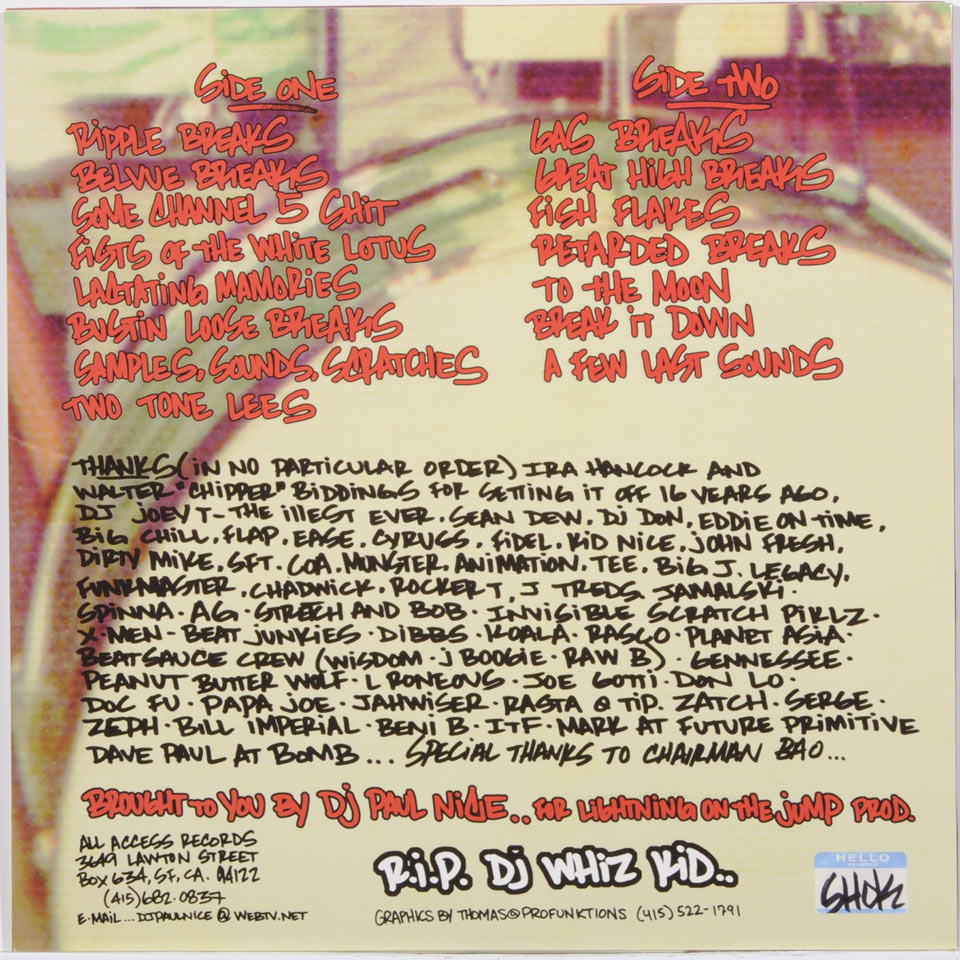 SIDE ONE
RIPPLE BREAKS
BELVUE BREAKS
SOME CHANNEL 5 SHIT
FISTS OF THE WHITE LOTUS
LACTATING MAMORIES
BUSTIN LOOSE BREAKS
SAMPLES, SOUNDS, SCRATCHES
TWO TONE LEES
SIDE TWO
GAS BREAKS
GREAT HIGH BREAKS
FISH FLAKES
RETARDED BREAKS
TO THE MOON
BREAK IT DOWN
A FEW LAST SOUNDS
THANKS (IN NO PARTICULAR ORDER) IRA HANCOCK AND
WALTER "CHIPPER" BIDDINGS FOR SETTING IT OFF 16 YEARS AGO,
DJ JOEY T - THE ILLEST EVER, SEAN DEW, DJ DON, EDDIE ON TIME,
BIG CHILL, FLAP, EASE, CYRUSS, FIDEL, KID NICE, JOHN FRESH,
DIRTY MIKE, SFT, COA, MUNSTER, ANIMATION, TEE, BIG J. LEGACY,
FUNKMASTER, CHADWICK, ROCKER T, J TREDS, JAMALSKI ·
SPINNA · AG · STRETCH AND BOB · INVISIBLE SCRATCH PIKLZ ·
X-MEN - BEAT JUNKIES · DIBBS · KOALA · RASCO · PLANET ASIA ·
BEATSAUCE CREW (WISDOM · J BOOGIE · RAW B) · GENNESSEE ·
PEANUT BUTTER WOLF · L RONEOUS · JOE GOTTI · DON LO ·
DOC FU · PAPA JOE · JAHWISER · RASTA Q TIP. ZATCH · SERGE ·
ZEPH · BILL IMPERIAL · BENI B · ITF · MARK AT FUTURE PRIMITIVE
DAVE PAUL AT BOMB... SPECIAL THANKS TO CHAIRMAN BAO...
BROUGHT TO YOU BY DJ PAUL NICE.. FOR LIGHTNING ON THE JUMP PROD.
ALL ACCESS RECORDS
3649 LAWTON STREET
BOX 634, SF, CA. 94122
(415) 682·0837
E-MAIL... DJPAULNICE@WEBTV.NET
R.I.P. DJ WHIZ KID..
GRAPHICS BY THOMAS@PROFUNKTIONS (415) 522-1791
HELLO
SHOK